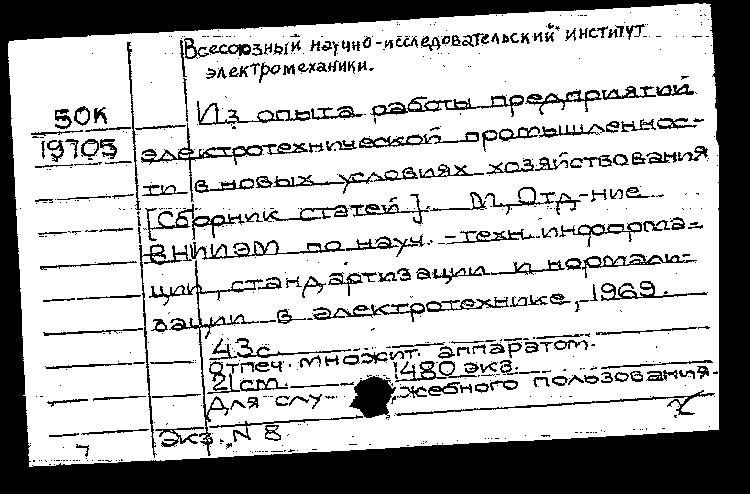 Всесоюзный научно-исследовательский институт
электромеханики.
50К
19705
Из опыта работы предприятий
электротехнической промышленнос-
ти в новых условиях хозяйствования
[Сборник статей]. М., Отд-ние
ВНИИЭМ по науч.-техн. информа-
ции, стандартизации и нормали-
зации в электротехнике, 1969.
43 с.
Отпеч. множит. аппаратом.
21 cm. 1480 экз.
Для слу- жебного пользования.
Экз. N 8